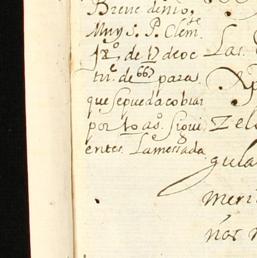 Breve de nro.
Muy S. P. Clem.te
12.º de 17 de oc
tu.e de 667 para
que se pueda cobrar
por 10 as. sigui
entes. La mesada
Las
Zel
gula
meri
nos